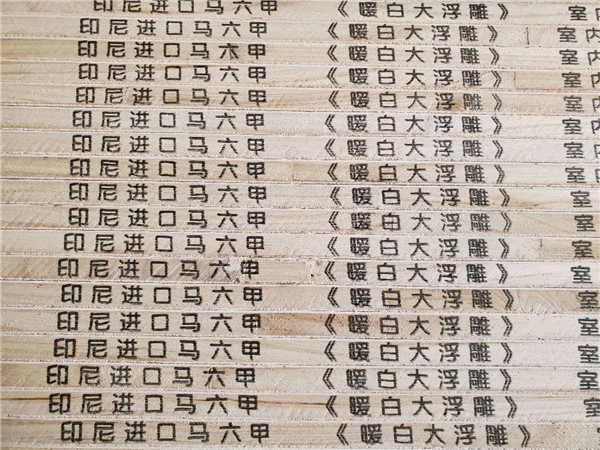 印尼进口马六甲 《暖白大浮雕》 室
印尼进口马六甲 《暖白大浮雕》 室内
印尼进口马六甲 《暖白大浮雕》 室内
印尼进口马六甲 《暖白大浮雕》 室内
印尼进口马六甲 《暖白大浮雕》 室内
印尼进口马六甲 《暖白大浮雕》 室内
印尼进口马六甲 《暖白大浮雕》 室内
印尼进口马六甲 《暖白大浮雕》 室
印尼进口马六甲 《暖白大浮雕》 室
印尼进口马六甲 《暖白大浮雕》 室
印尼进口马六甲 《暖白大浮雕》 室
印尼进口马六甲 《暖白大浮雕》 室
印尼进口马六甲 《暖白大浮雕》 室
印尼进口马六甲 《暖白大浮雕》 室
印尼进口马六甲 《暖白大浮雕》 室
印尼进口马六甲 《暖白大浮雕》 室
印尼进口马六甲 《暖白大浮雕》 室
印尼进口马六甲 《暖白大浮雕》 室